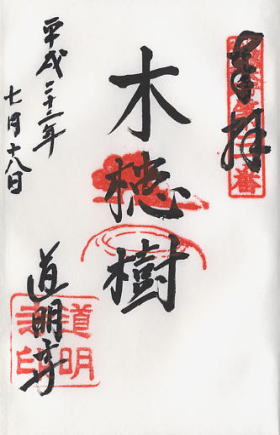 奉拝
木槵樹
平成二十二年
七月十八日
道明寺
道明
寺印